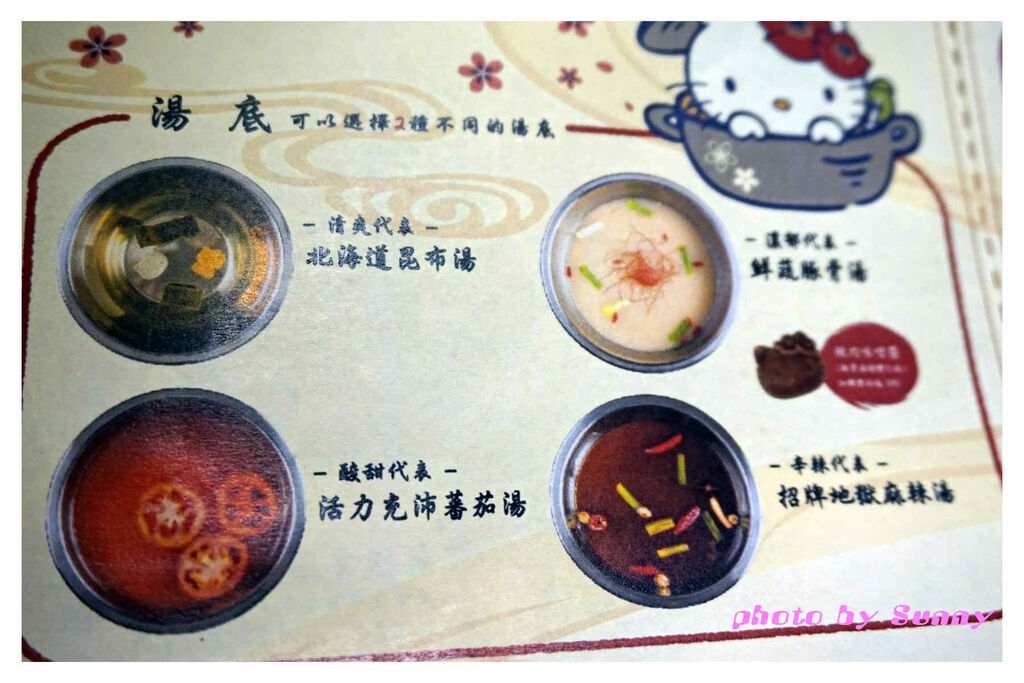 湯 底 可以選擇2種不同的湯底
- 清爽代表 -
北海道昆布湯
- 濃郁代表 -
鮮蔬豚骨湯
- 酸甜代表 -
活力充沛蕃茄湯
- 辛辣代表 -
招牌地獄麻辣湯
photo by Sunny